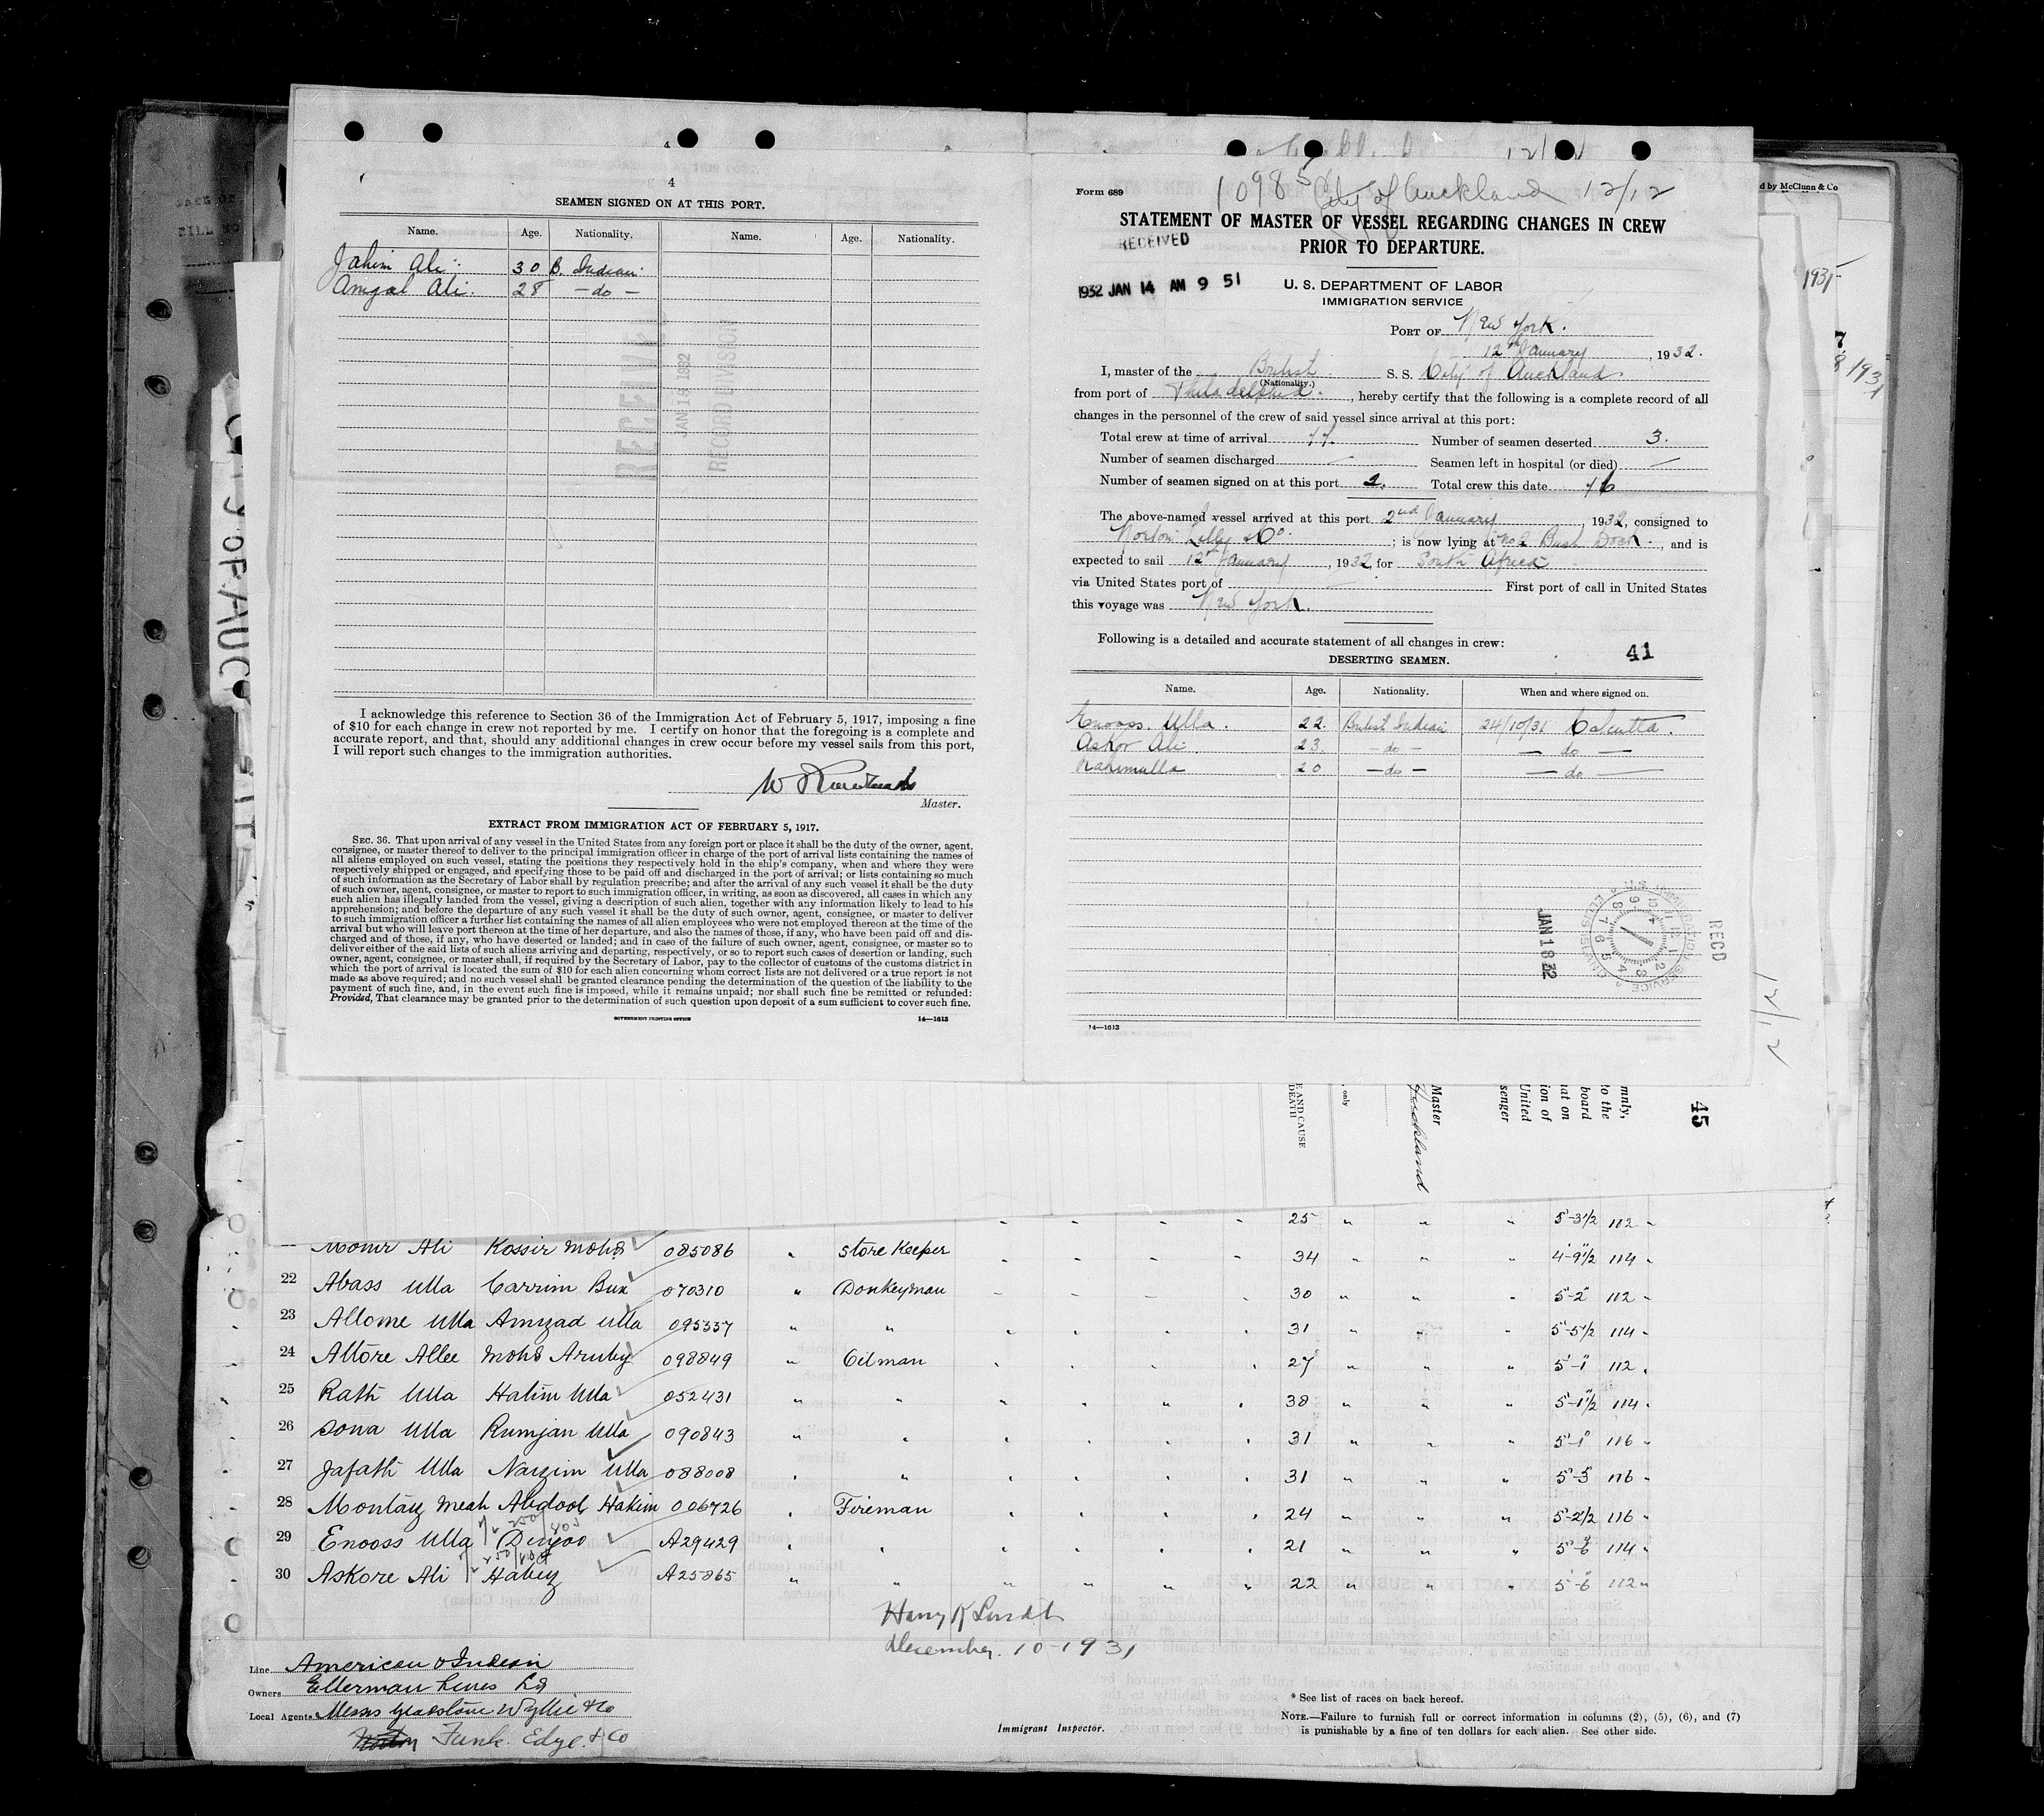 4
4
SEAMEN SIGNED ON AT THIS PORT.
Name. Age. Nationality. Name. Age. Nationality.
Jahim Ali 30 B. Indian
Amjal Ali. 28 — do —
RECEIVED
JAN 18 1932
RECORD DIVISION
I acknowledge this reference to Section 36 of the Immigration Act of February 5, 1917, imposing a fine
of $10 for each change in crew not reported by me. I certify on honor that the foregoing is a complete and
accurate report, and that, should any additional changes in crew occur before my vessel sails from this port,
I will report such changes to the immigration authorities.
Master.
EXTRACT FROM IMMIGRATION ACT OF FEBRUARY 5, 1917.
SEC. 36. That upon arrival of any vessel in the United States from any foreign port or place it shall be the duty of the owner, agent,
consignee, or master thereof to deliver to the principal immigration officer in charge of the port of arrival lists containing the names of
all aliens employed on such vessel, stating the positions they respectively hold in the ship's company, when and where they were
respectively shipped or engaged, and specifying those to be paid off and discharged in the port of arrival; or lists containing so much
of such information as the Secretary of Labor shall by regulation prescribe; and after the arrival of any such vessel it shall be the duty
of such owner, agent, consignee, or master to report to such immigration officer, in writing, as soon as discovered, all cases in which any
such alien has illegally landed from the vessel, giving a description of such alien, together with any information likely to lead to his
apprehension; and before the departure of any such vessel it shall be the duty of such owner, agent, consignee, or master to deliver
to such immigration officer a further list containing the names of all alien employees who were not employed thereon at the time of the
arrival but who will leave port thereon at the time of her departure, and also the names of those, if any, who have been paid off and dis-
charged and of those, if any, who have deserted or landed; and in case of the failure of such owner, agent, consignee, or master so to
deliver either of the said lists of such aliens arriving and departing, respectively, or so to report such cases of desertion or landing, such
owner, agent, consignee, or master shall, if required by the Secretary of Labor, pay to the collector of customs of the customs district in
which the port of arrival is located the sum of $10 for each alien concerning whom correct lists are not delivered or a true report is not
made as above required; and no such vessel shall be granted clearance pending the determination of the question of the liability to the
payment of such fine, and, in the event such fine is imposed, while it remains unpaid; nor shall such fine be remitted or refunded:
Provided, That clearance may be granted prior to the determination of such question upon deposit of a sum sufficient to cover such fine.
GOVERNMENT PRINTING OFFICE 14—1613
Form 689
10985 City of Auckland 12/12
STATEMENT OF MASTER OF VESSEL REGARDING CHANGES IN CREW
PRIOR TO DEPARTURE.
RECEIVED
1932 JAN 14 AM 9 51
U. S. DEPARTMENT OF LABOR
IMMIGRATION SERVICE
PORT OF New York.
12th January, 1932.
I, master of the British S. S. City of Auckland
(Nationality.)
from port of Philadelphia., hereby certify that the following is a complete record of all
changes in the personnel of the crew of said vessel since arrival at this port:
Total crew at time of arrival 77. Number of seamen deserted 3.
Number of seamen discharged — Seamen left in hospital (or died) —
Number of seamen signed on at this port 2. Total crew this date 76
The above-named vessel arrived at this port 2nd January, 1932, consigned to
Norton Lilly & Co.; is now lying at No 2 Bush Dock., and is
expected to sail 12th January, 1932, for South Africa
via United States port of — First port of call in United States
this voyage was New York.
Following is a detailed and accurate statement of all changes in crew:
41
DESERTING SEAMEN.
Name. Age. Nationality. When and where signed on.
Enooss. Ulla. 22. British Indian 24/10/31 Calcutta.
Askor Ali 23. — do — — do —
Rahimulla 20 — do — — do —
JAN 18 32
RECD
14—1613
d by McClunn & Co
1931
7
8 1931
E AND CAUSE
DEATH
only
Master
Auckland
senger
United
ion of
at on
board
to the
mnly,
45
25 " " " 5-3 1/2 112 "
Momr Ali Kossir Mohd 085086 " Store Keeper 34 " " " 4-9 1/2 114 "
22 Abass Ulla Carrim Bux 070310 " Donkeyman 30 " " " 5-2 112 "
23 Allome Ulla Amyzad Ulla 095337 " " 31 " " " 5-5 1/2 114 "
24 Attore Allee Mohd Aruby 098849 " Oilman 27 " " " 5-1 112 "
25 Rath Ulla Halim Ulla 052431 " " 38 " " " 5-1 1/2 114 "
26 Sona Ulla Rumjan Ulla 090843 " " 31 " " " 5-1 116 "
27 Jafath Ulla Nazim Ulla 088008 " " 31 " " " 5-5 116 "
28 Montaz Meah Abdool Hakim 006726 " Fireman 24 " " " 5-2 1/2 116 "
29 Enooss Ulla A29429 " " 21 " " " 5-6 114 "
30 Askore Ali Habiz A25865 " " 22 " " " 5-6 112 "
December. 10-1931
Line American & Indian
Owners Ellerman Lines Ld
Local Agents Messrs Gladstone Wyllie & Co
Norton Funk. Edye. & Co
Immigrant Inspector.
* See list of races on back hereof.
NOTE.—Failure to furnish full or correct information in columns (2), (5), (6), and (7)
is punishable by a fine of ten dollars for each alien. See other side.